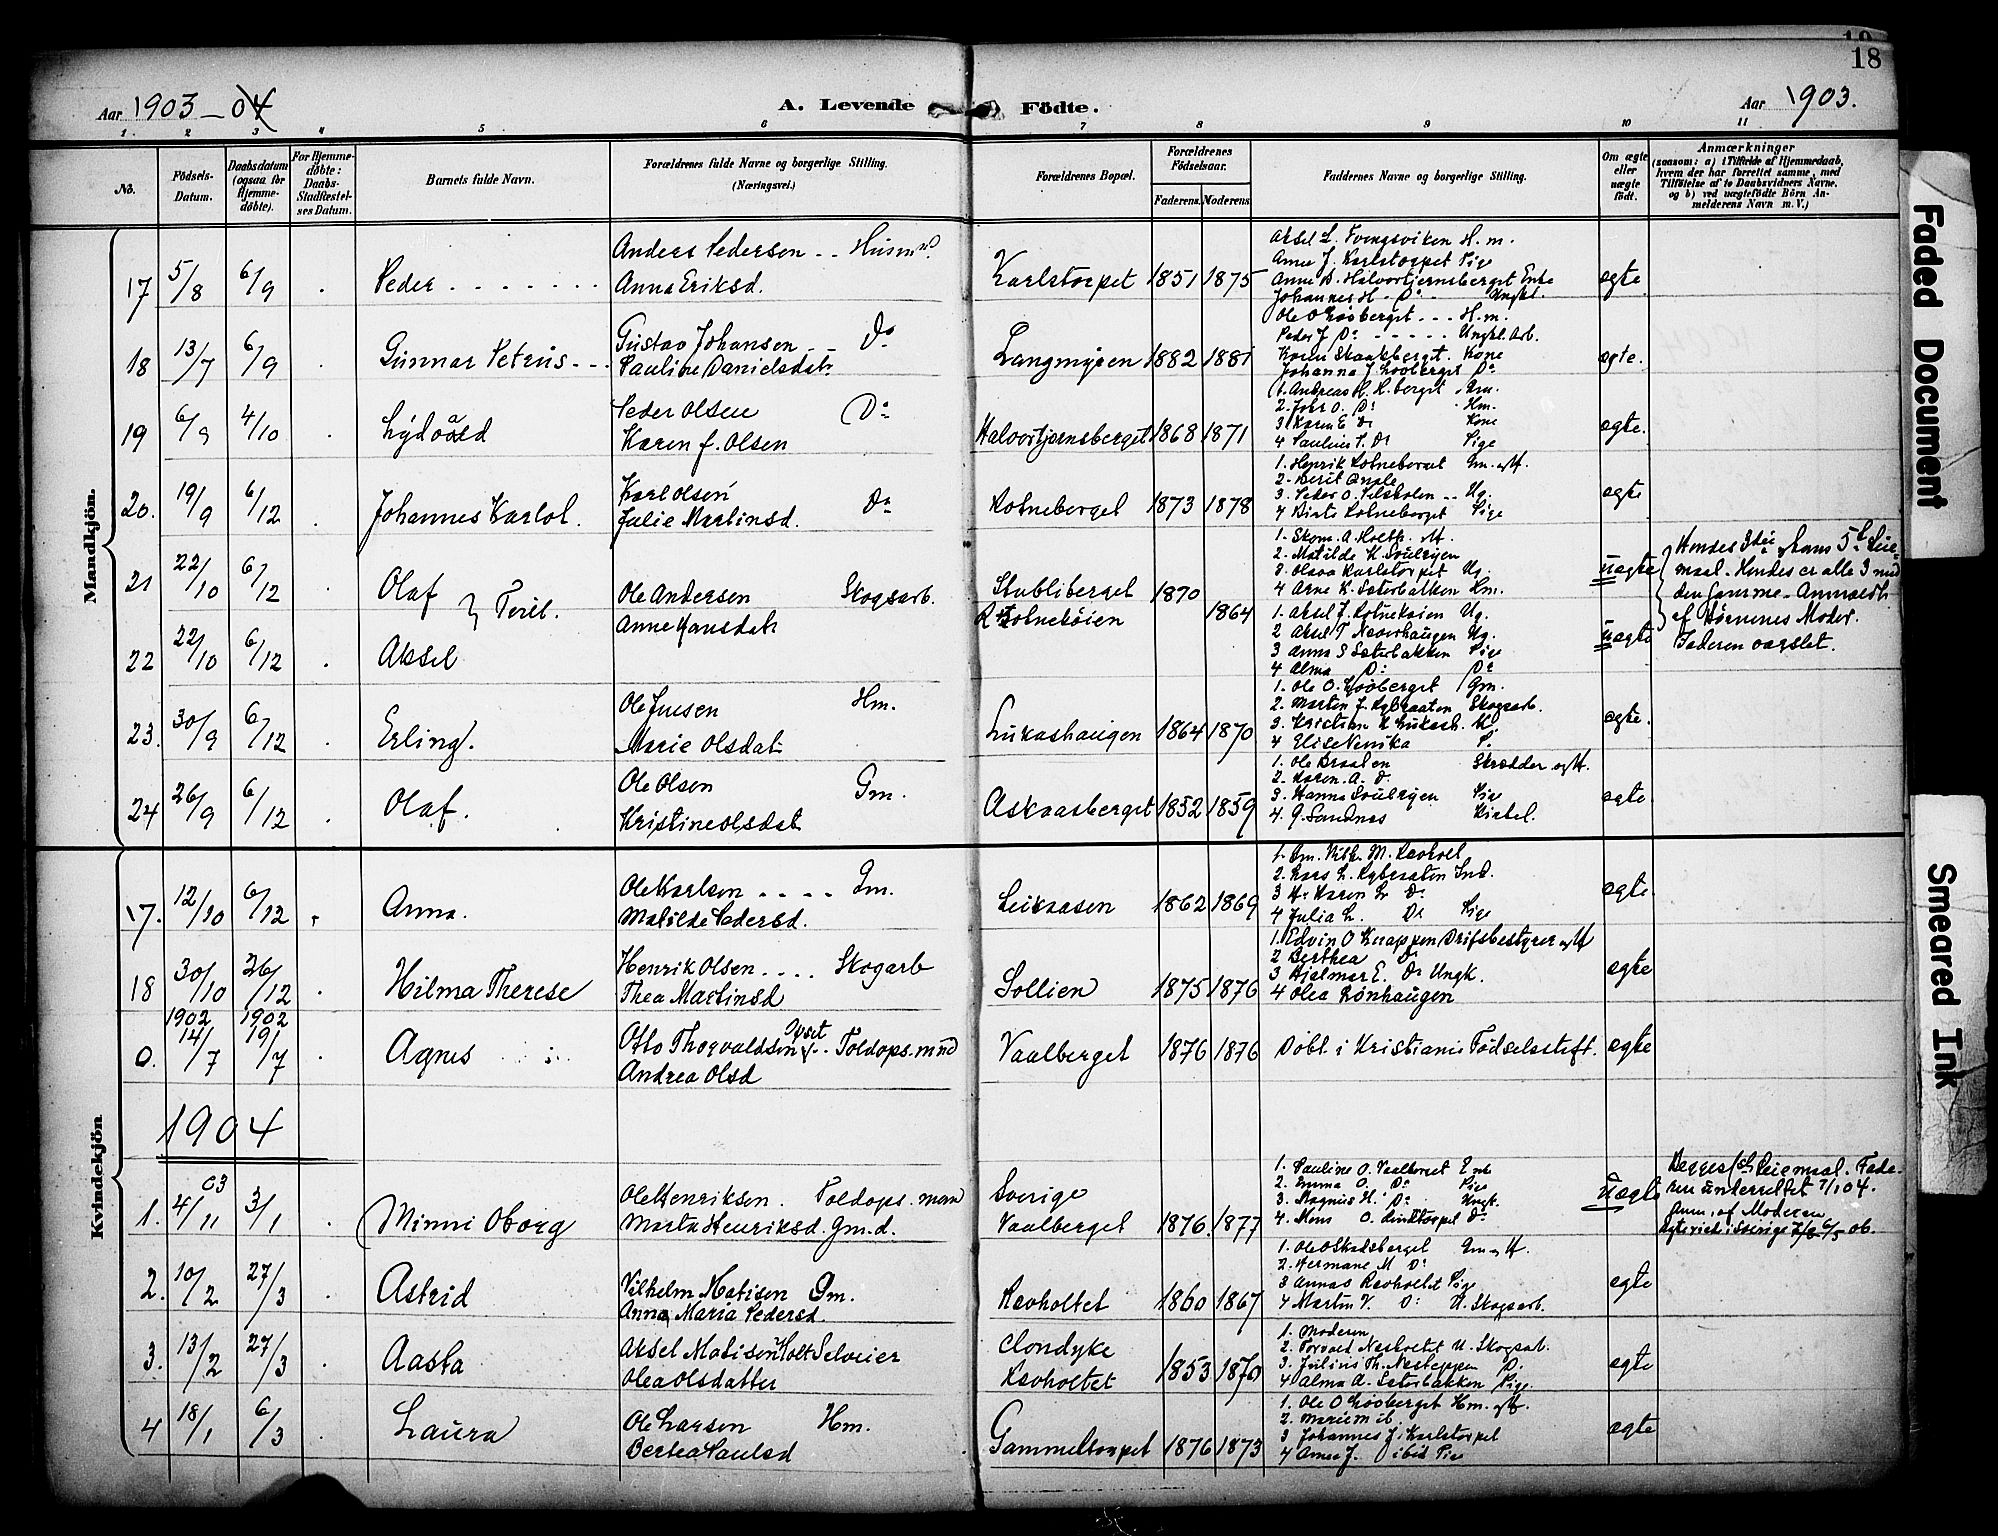 18
Aar 1903-04 A. Levende Födte. Aar 1903.
1. 2 3 4 5 6 7 8 9 10 11
No. Födsels-Datum. Daabsdatum (ogsaa for Hjemmedöbte). For Hjemmedöbte: Daabs-Stadfæstelses Datum. Barnets fulde Navn. Forældrenes fulde Navne og borgerlige Stilling. (Næringsvei.) Forældrenes Bopæl. Forældrenes Födselsaar. Faderens. Moderens. Faddernes Navne og borgerlige Stilling. Om ægte eller uægte födt. Anmærkninger (saasom: a) i Tilfælde af Hjemmedaab, hvem der har forrettet samme, med Tilföielse af to Daabsvidners Navne, og b) ved uægtefödte Börn Anmelderens Navn m. V.)
Mandkjön.
17 5/8 6/9 Peder Anders Pedersen Husmd. Anna Eriksd. Karlstorpet 1851 1875 ægte.
Aksel L. Tvengsviken H. m.
Anne J. Karlstorpet Pige
Anne D. Halvortjernsberget Enke
Johannes H. Do Ungkl.
18 13/7 6/9 Gunnar Petrus Gustav Johansen Do Pauline Danielsdatr Langmyren 1882 1881 ægte.
Ole O Lööberget H. m.
Peder J Do Ungkl. Arb.
Karen Skaakberget. Kone
Johanna J. Lööberget Do
19 6/9 4/10 Peder Olsen Do Karen J. Olsen Halvortjernsberget 1868 1871 ægte.
1. Andreas H. H. berget
2. Do Hm.
3 Karin E Do Kone
4 Do Pige
20. 19/9 6/12 Johannes Karlot. Karl Olsen Do Julie Martinsd. Rotneberget 1873 1878 ægte
1. Henrik Rotneberget Gm.
2. Berit
3. Peder O. Ug.
4 Rotneberget Pige
21 22/10 6/12 Olaf Tvil. Ole Andersen Skogsarb. Anne Hansdatr Stubliberget 1870 uægte
1. Skom. A. Holth.
2. Matilde K.
3 Karlstorpet Ug.
4 Arne K. Sæterbakken Hm.
Hendes 3die, hans 5te Leiermaal. Hendes er alle 3 med den samme. Anmeldt af Börnenes Moder. Faderen varslet.
22 22/10 6/12 Aksel Rotneköien 1864 uægte
1. Aksel J. Rotneköien Ug.
2 Aksel T. Næverhaugen Ug.
3 Anna S Sæterbakken Pige
4 Alma Do Do
23. 30/9 6/12 Erling. Ole Jensen Hm. Marie Olsdatr Lukashaugen 1864 1870 ægte.
1. Ole O. Lööberget Gm.
2. Martin J. Rybraaten Skogsarb.
3. Kristian K Lukash. U.
4 P.
24 26/9 6/12 Olaf. Ole Olsen Gm. Kristine Olsdat Askaasberget 1852 1859 ægte.
1. Ole Braaten Skrædder
2. Karen. A. D.
3. Hanna Pige
4. G. Sandnæs
Kvindekjön
17. 12/10 6/12 Anna. Ole Karlsen Gm. Matilde Pedersd. Leikaasen 1862 1869 ægte.
1. Gm. Vilh. M. Ravholt
2. Lars L. Rybraaten Ind.
3 Karen L. Do
4 Julia L. Do Pige
18 30/10 26/12 Hilma Therese Henrik Olsen Skogarb Thea Martinsd Sollien 1875 1876 ægte
1. Edvin O Knappen Drifsbestyrer
2 Berthea Do
3 Hjalmar E. Do Ungk.
4 Olea Lönhaugen
1902 1902
0. 14/7 19/7 Agnes Otto Thorvaldsen Opset Toldops.mnd Andrea Olsd Vaalberget 1876 1876 Döbt i Kristiania Födselsstift. ægte
1904
1. 4/11 03 3/1 Minni Oborg Ole Henriksen. Toldops. man Marta Henriksd. Gm. d. Sverige Vaalberget 1876. 1877 uægte
1. Pauline O. Vaalberget Enk
2. Emma O. Do Pige
3. Magnus H. Do Ungk.
4. Mons O. Linktorpet Do
Begges 1ste Leiermaal. Faderen underrettet 7/1 04. Anm. af Moderen
2. 10/2 27/3 Astrid Vilhelm Matisen Gm. Anna Maria Pedersd. Ravholtet 1860 1867 ægte
1. Ole O Skadsberget Gm
2. Hermane M Do
3 Annas Ravholtet Pige
4 Martin V. Do U. Skogsarb.
3. 13/2 27/3 Aasta Aksel Matisen Holt Selveier Olea Olsdatter Clondyke Ravholtet 1853 1870 ægte
1. Moderen
2. Torvald Næsholtet U. Skogsarb.
3. Julius Th. Næsteppen D.
4 Alma A. Sæterbakken Pige.
4 18/1 6/3 Laura Ole Larsen Hm. Bertea Paulsd Gammeltorpet 1876 1873 ægte
1. Ole O Lööberget Hm.
2. Marie M ib.
3 Johannes J. Karlstorpet
4 Anne J. ibid Pige
Faded Document
Smeared Ink